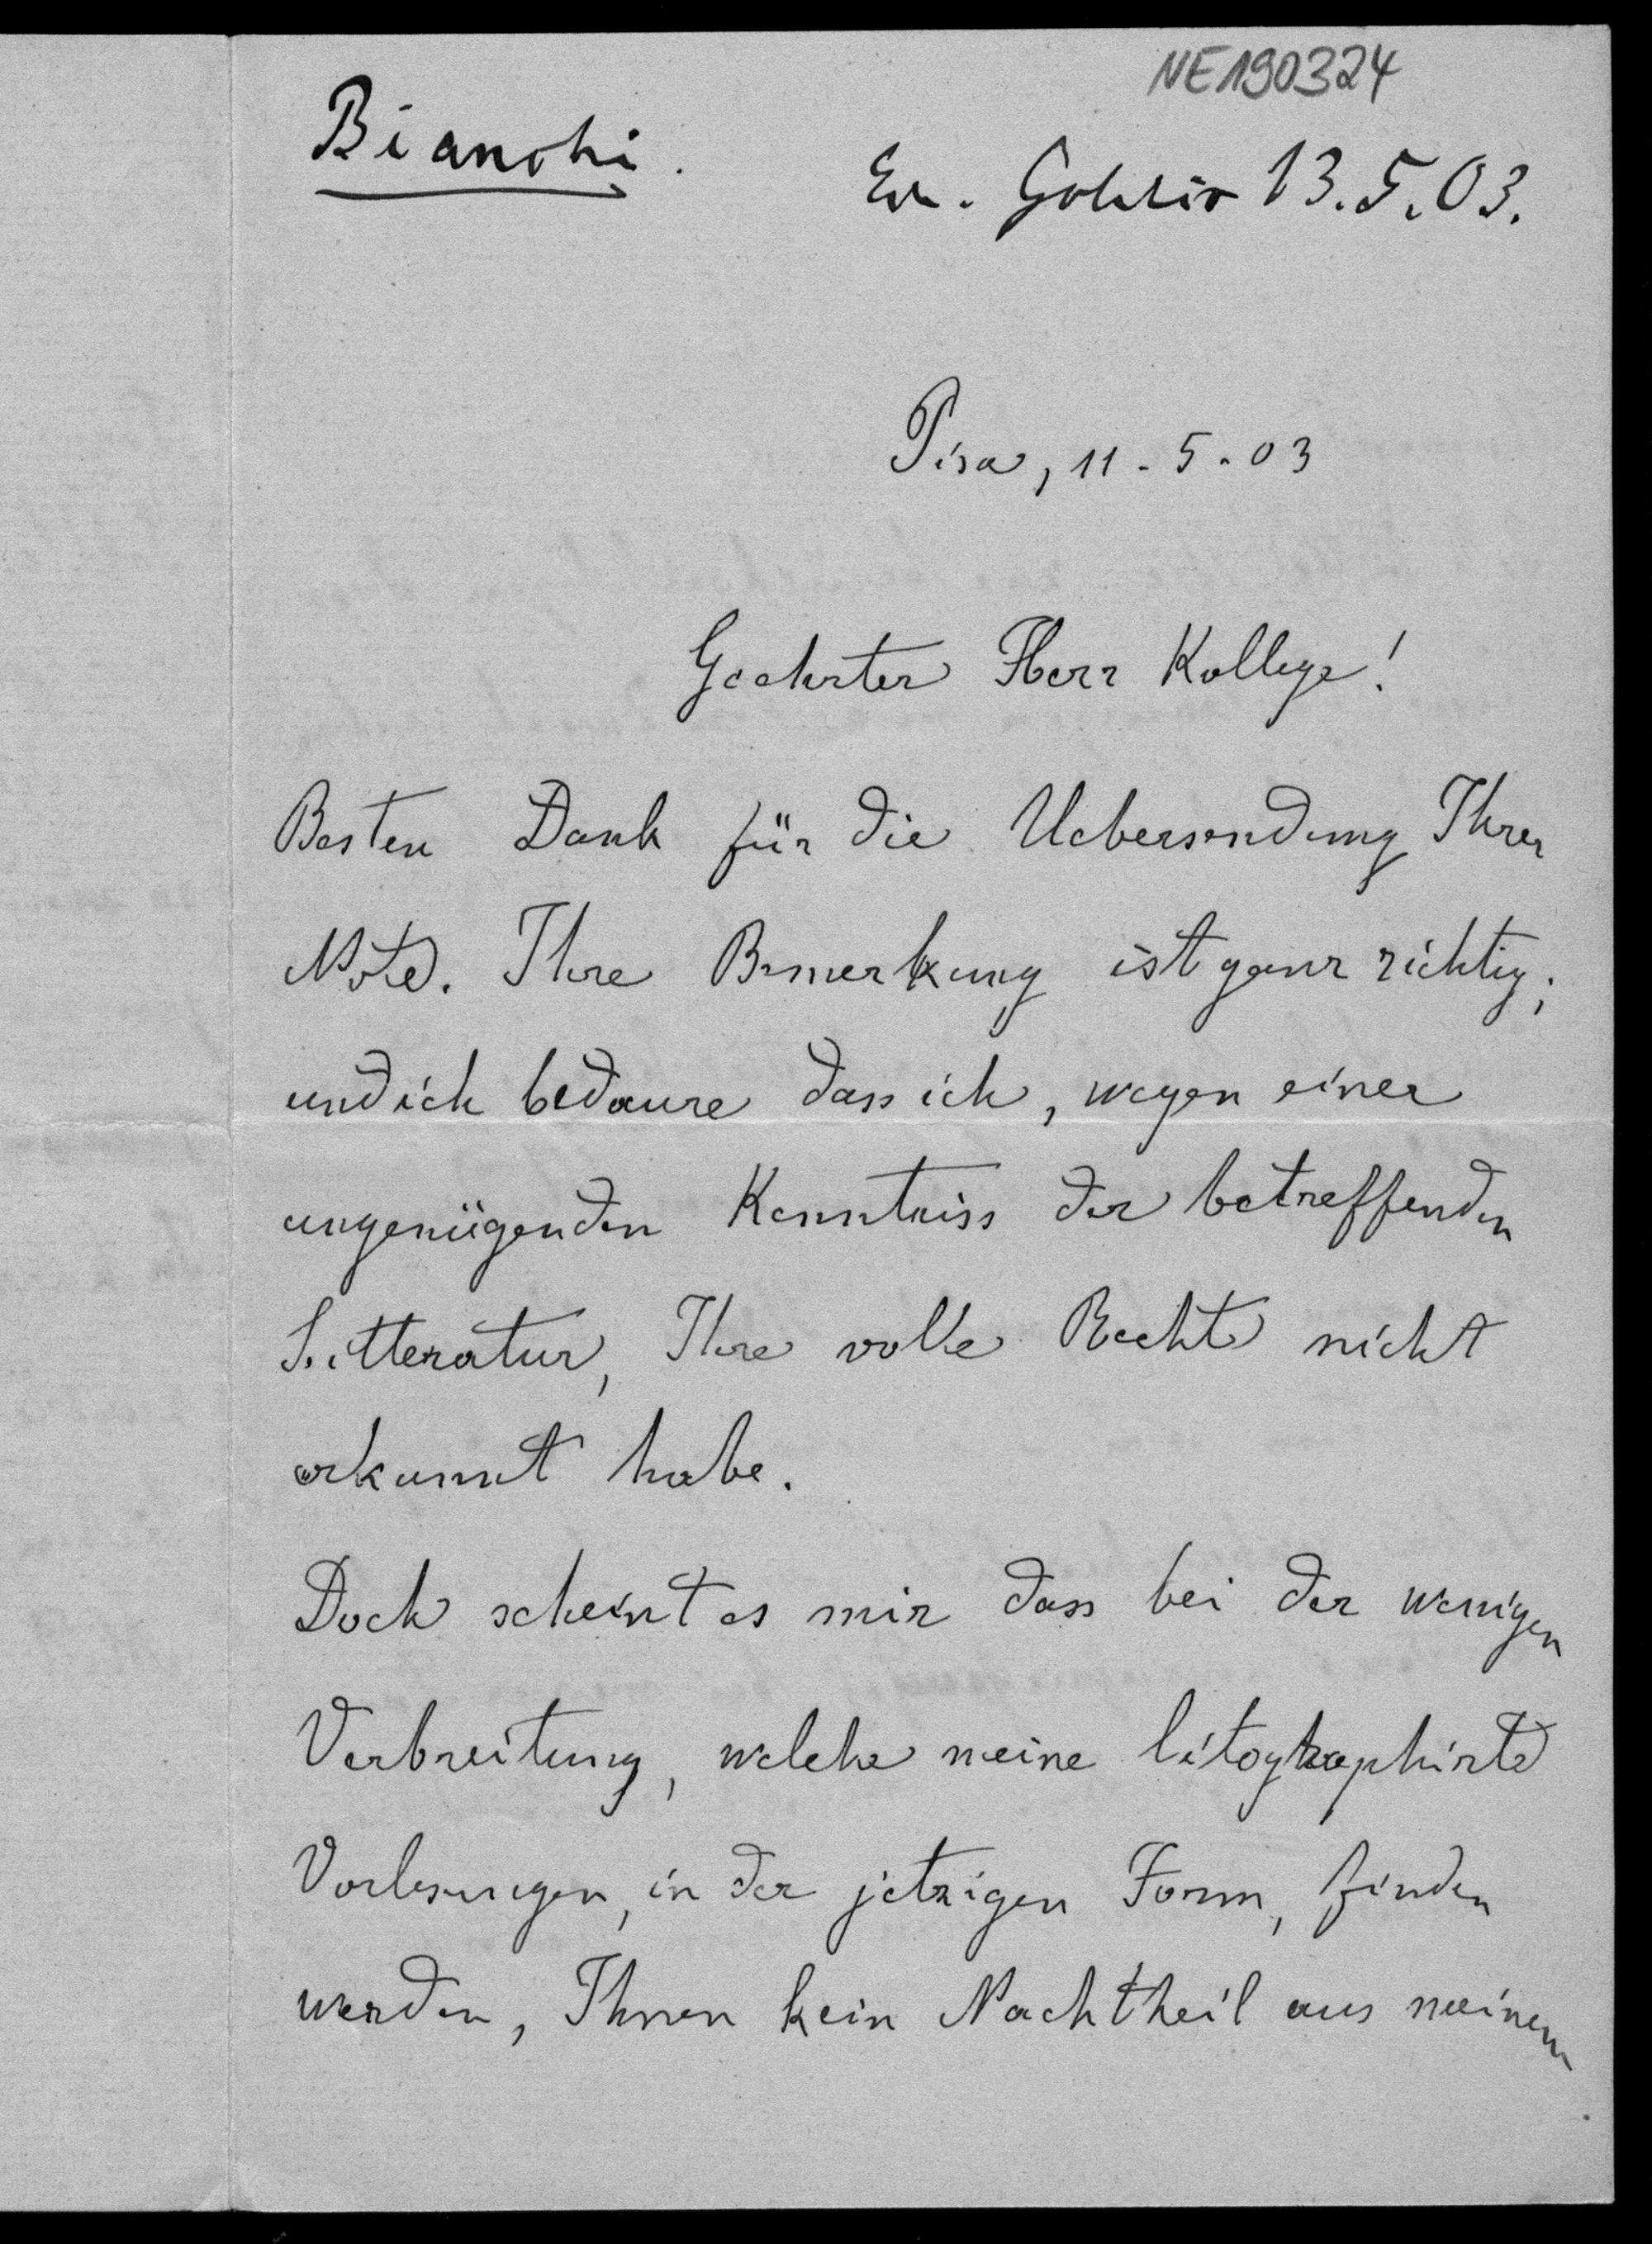 NE190324
Bianchi.
Gohlis 13.5.03.
Pisa, 11-5-03
Geehrter Herr Kollege!
Besten Dank für die Uebersendung Ihrer
Note. Ihre Bemerkung ist ganz richtig;
und ich bedaure dass ich, wegen einer
ungenügenden Kenntniss der betreffenden
Litteratur, Ihre volle Rechte nicht
erkannt habe.
Doch scheint es mir dass bei der wenigen
Verbreitung, welche meine litographirte
Vorlesungen, in der jetzigen Form, finden
werden, Ihnen kein Nachtheil aus meinem